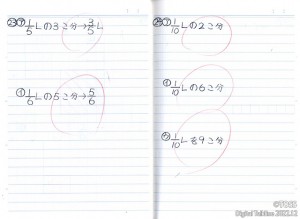 ㉓㋐1/5Lの3こ分→3/5L
㋑1/6Lの5こ分→5/6
㋐1/10Lの2こ分
㋑1/10Lの6こ分
㋒1/10Lを9こ分
©TOSS
Digital Talkline 2022.12